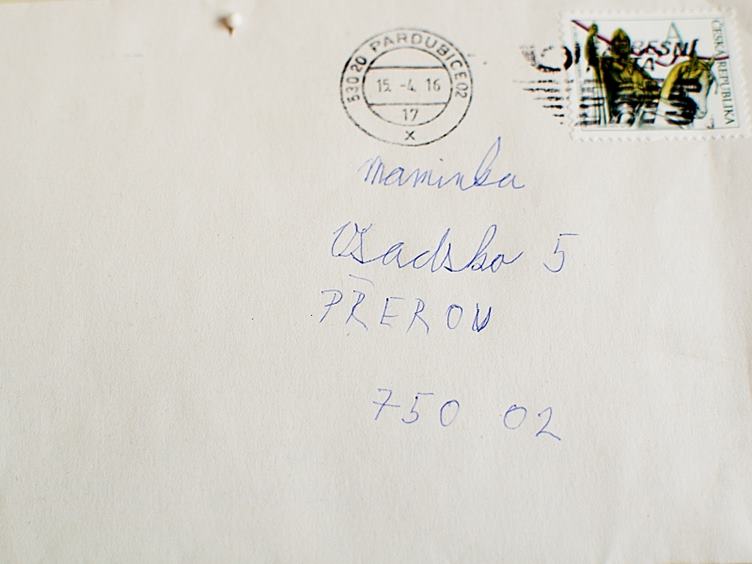 530 20 PARDUBICE 02
15. -4. 16
17
x
A
ČESKÁ REPUBLIKA
maminka
Vsadsko 5
PŘEROV
750 02